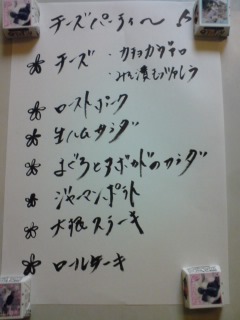 チーズパーティー
チーズ ・カチョカヴァロ
・みそ漬モツァレラ
ローストポーク
生ハムサラダ
まぐろとアボカドのサラダ
ジャーマンポテト
大根ステーキ
ロールケーキ